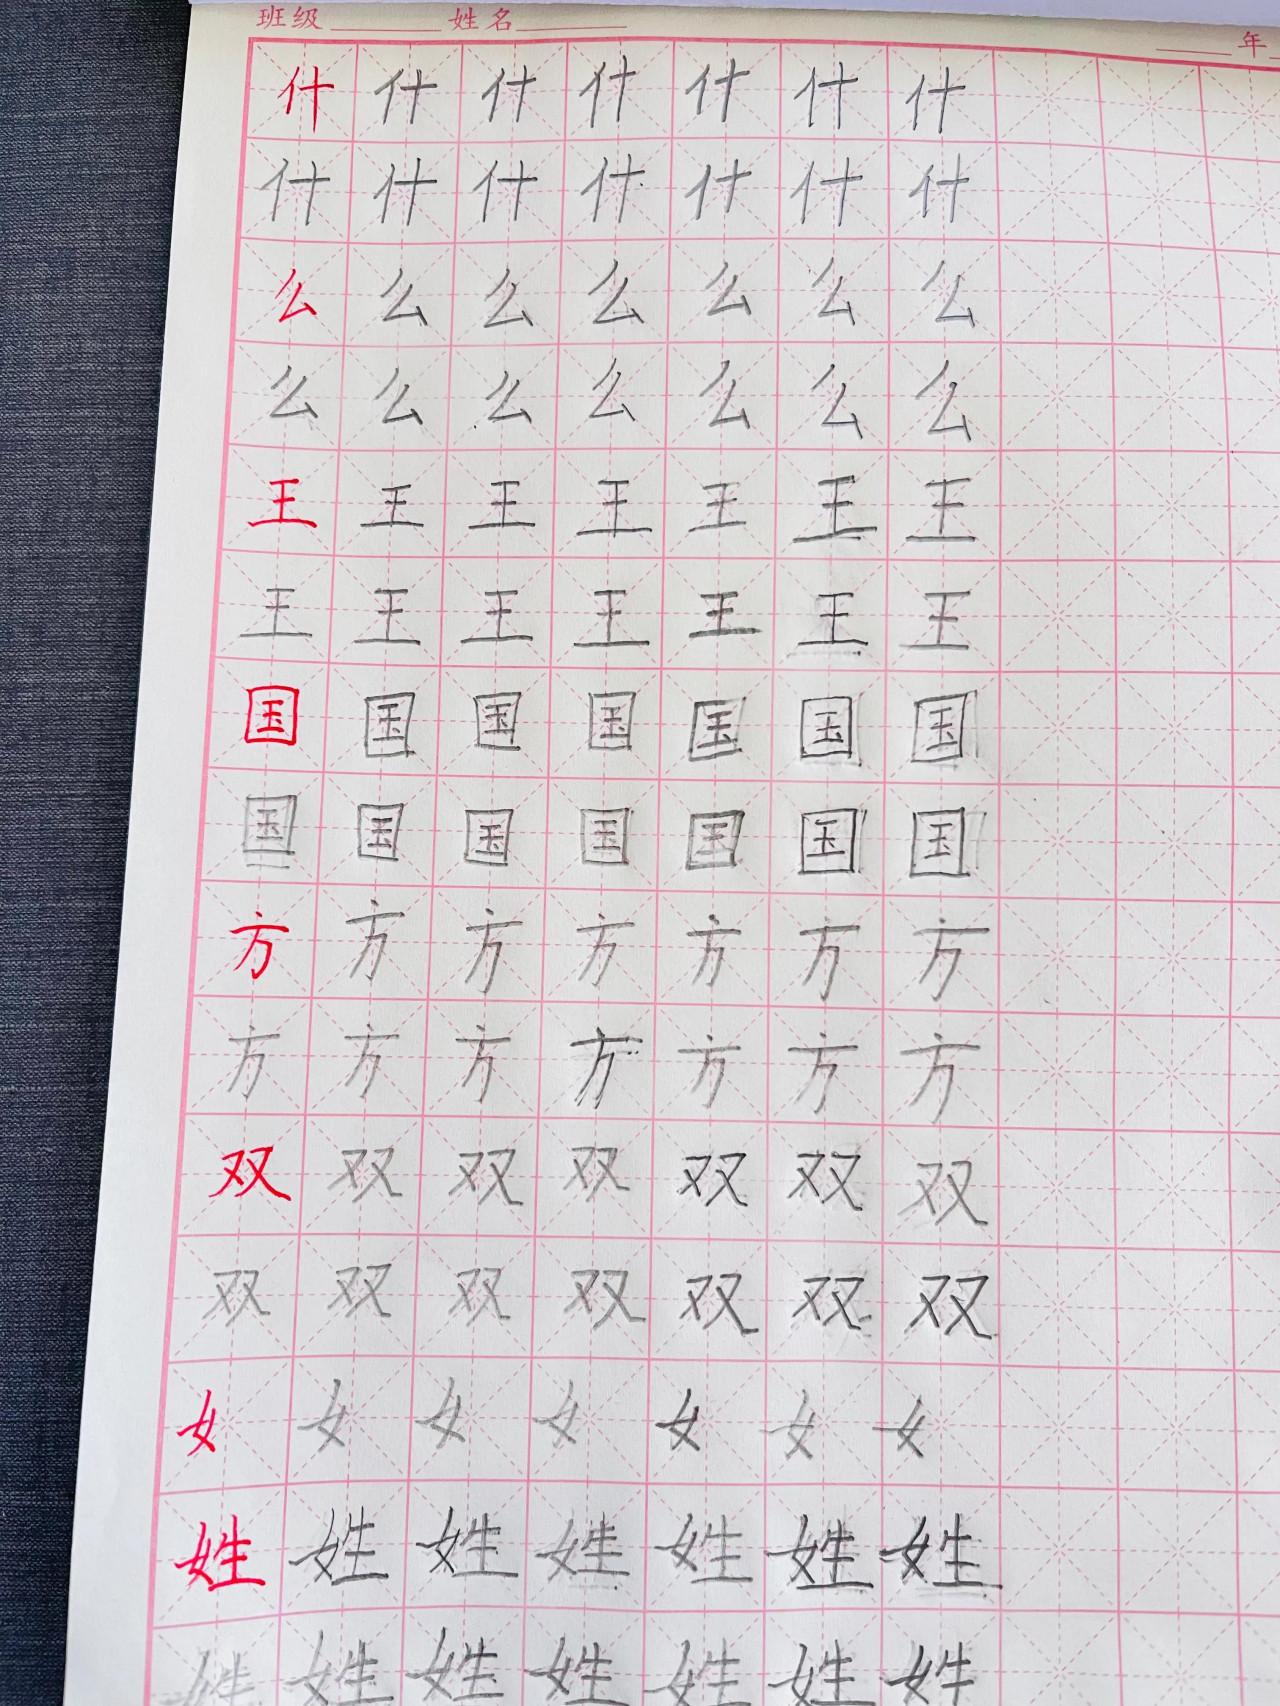 班级 姓名 年
什什什什什什什
什什什什什什什
么么么么么么么
么么么么么么么
王王王王王王王
王王王王王王王
国国国国国国国
国国国国国国国
方方方方方方方
方方方方方方方
双双双双双双双
双双双双双双双
女女女女女女女
姓姓姓姓姓姓姓
姓姓姓姓姓姓姓